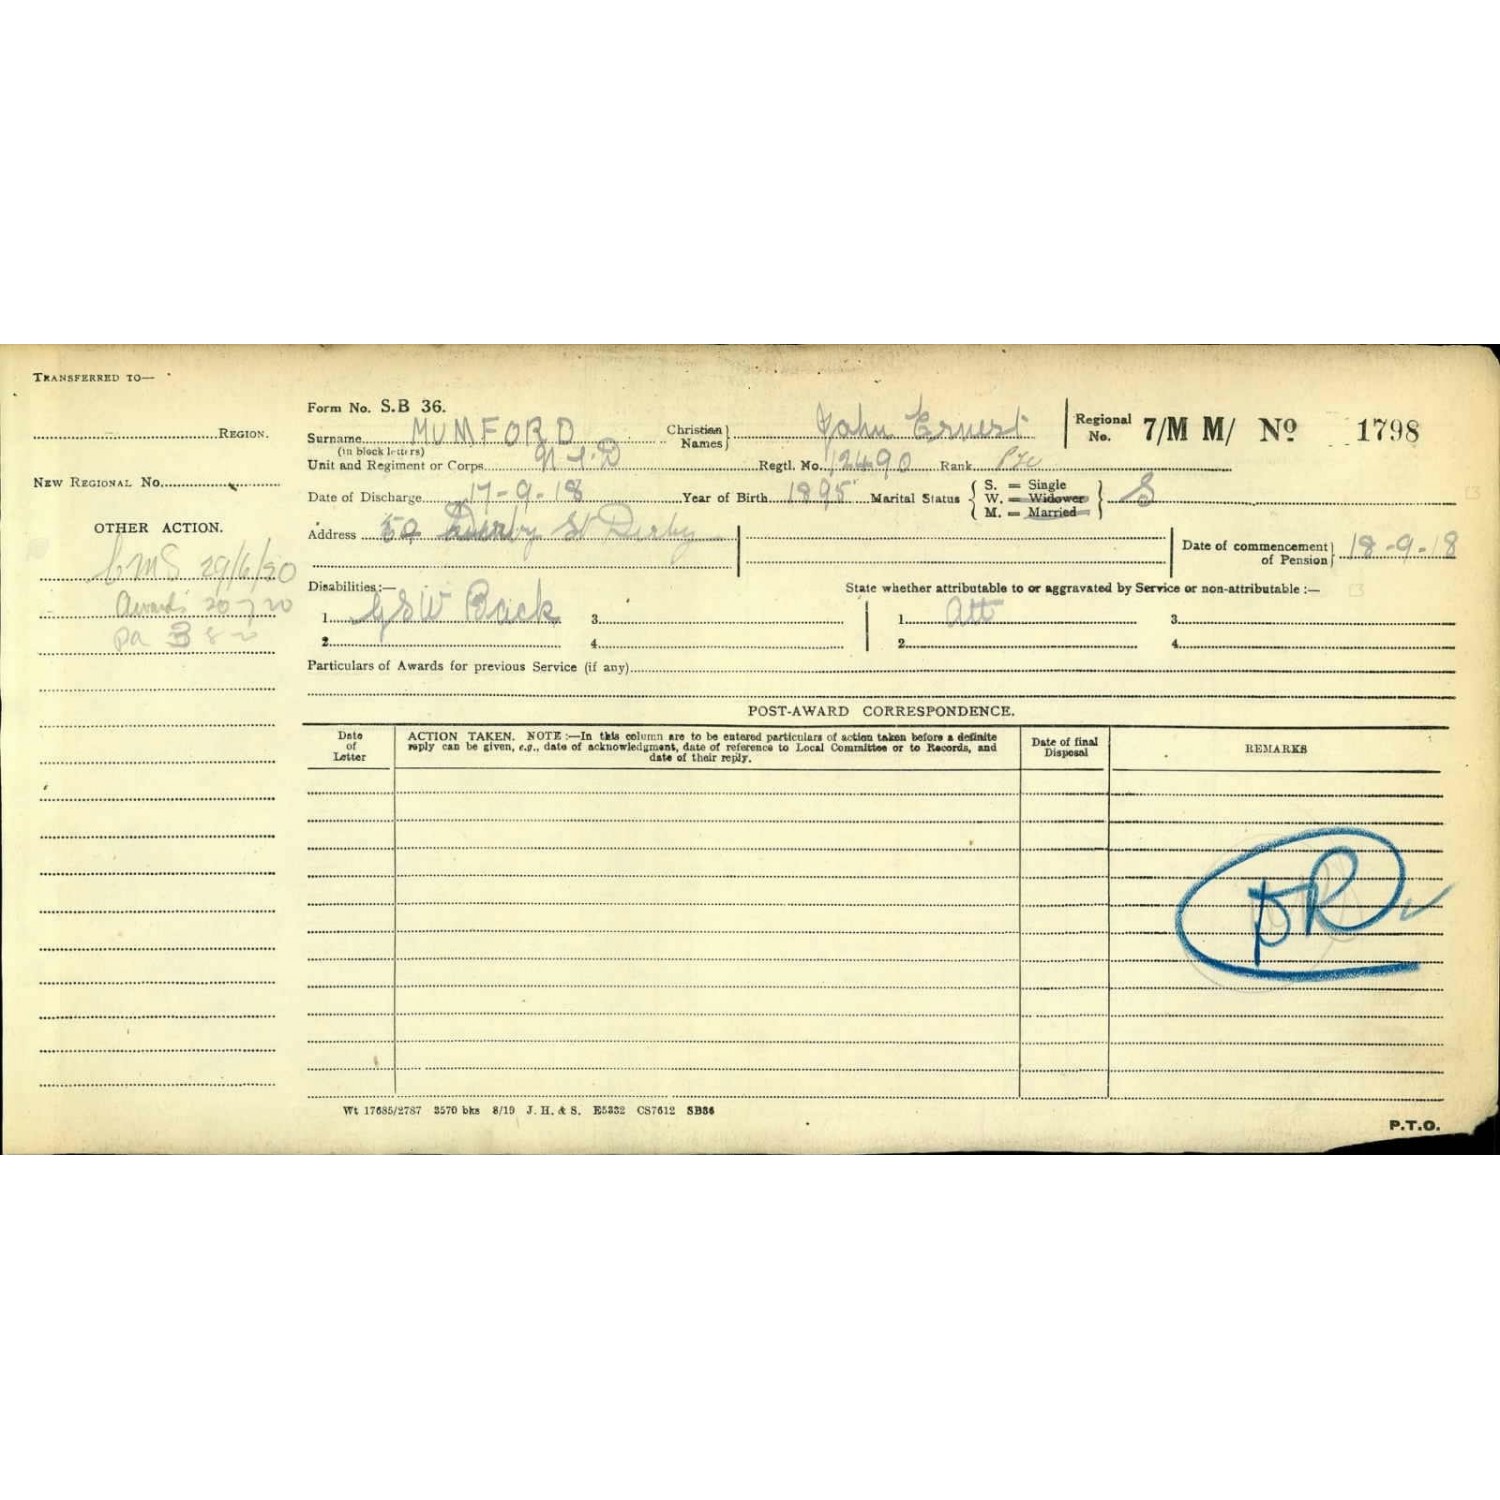 TRANSFERRED TO—
REGION.
NEW REGIONAL No.
OTHER ACTION.
CMS 29/6/20
Awards 20-7-20
pa 3 8 20
Form No. S.B 36.
Surname MUMFORD
(in block letters)
Christian Names John Ernest
Regional No. 7/M M/ No 1798
Unit and Regiment or Corps
Regtl. No. 12490 Rank Pte
Date of Discharge 17-9-18 Year of Birth 1895 Marital Status S. = Single W. = Widower M. = Married S
Address 50 St Derby
Date of commencement of Pension 18-9-18
Disabilities:—
State whether attributable to or aggravated by Service or non-attributable:—
1. GSW Back 3. 1. Att 3.
2. 4. 2. 4.
Particulars of Awards for previous Service (if any)
POST-AWARD CORRESPONDENCE.
Date of Letter
ACTION TAKEN. NOTE:—In this column are to be entered particulars of action taken before a definite
reply can be given, e.g., date of acknowledgment, date of reference to Local Committee or to Records, and
date of their reply.
Date of final Disposal
REMARKS
DR
Wt 17685/2787 3570 bks 8/19 J. H. & S. E5332 CS7612 SB36
P.T.O.